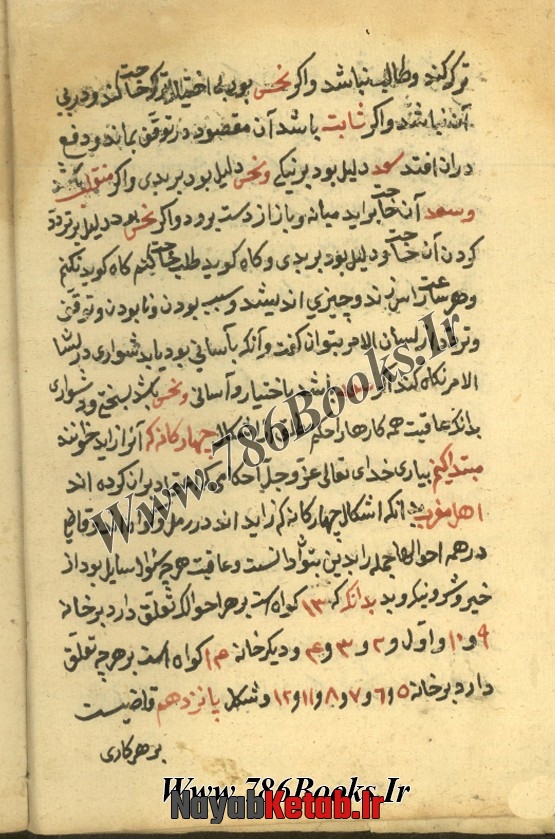 ترک کند و طالب نباشد و اکر نحس بود بی اختیار ترک حاجت کند و در پی
آن نباشد و اکر ثابت باشد آن مقصود در توقف بماند و دفع
دران افتد سعد دلیل بود بر نیکی و نحس دلیل بود بر بدی و اکر منقلب باشد
و سعد آن حاجت براید میانه و باز از دست برود و اکر نحس بود دلیل بر تردد
کردن آن حاجت و دلیل بود بر بدی و کاه کوید طلب حاجت کنم کاه کوید نکنم
و هر ساعت رای زند و چیزی اندیشد و سبب بودن و نابودن و توقف
و تردد از لسان الامر بتوان کفت و آنکه بآسانی بود یا بدشواری در لسان
الامر نکاه کند اکر سعد باشد باختیار و آسانی و نحس باشد بسختی و دشواری
بدانکه عاقبت همه کارها را حکم تعلق از اشکال چهارکانه که آنرا زاید خوانند
مبتدا کنم بیاری خدای تعالی عز و جل احکامی که اعتماد بران کرده اند
اهل مغرب بدانکه اشکال چهارکانه که زاید اند در رمل کواهانند و قاضی
در همه احوالها جمله را بدین بتواند دانست و عاقبت هر چه سؤال سایل بود از
خیر و شر و نیک و بد بدانکه که ۱۳ کواه است بر هر احوال که تعلق دارد بر خانه
۹ و ۱۰ و اول و ۲ و ۳ و ۴ و دیکر خانه ۱۴ کواه است بر هر چه تعلق
دارد بر خانه ۵ و ۶ و ۷ و ۸ و ۱۱ و ۱۲ و شکل پانزدهم قاضیست
بر هر کاری
Www.786Books.Ir
Www.786Books.Ir
NayabKetab.Ir